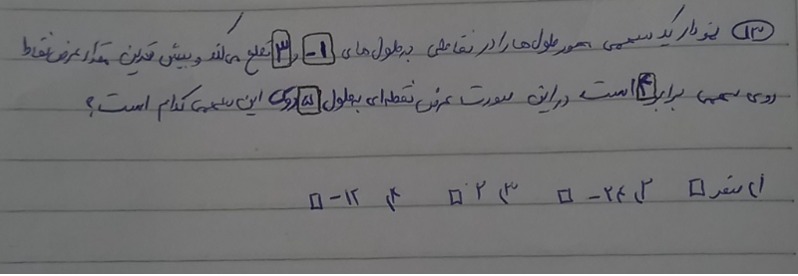 ۱۲) نمودار یک سهمی محور طول‌ها را در نقاطی به طول‌های ۱- و ۳ قطع می‌کند و بیش‌ترین مقدار عرض نقاط
روی سهمی برابر ۴ است در این صورت عرض نقطه‌ای به طول ۵ روی این سهمی کدام است؟
۱) صفر □ ۲) ۲۴- □ ۳) ۲ □ ۴) ۱۲- □